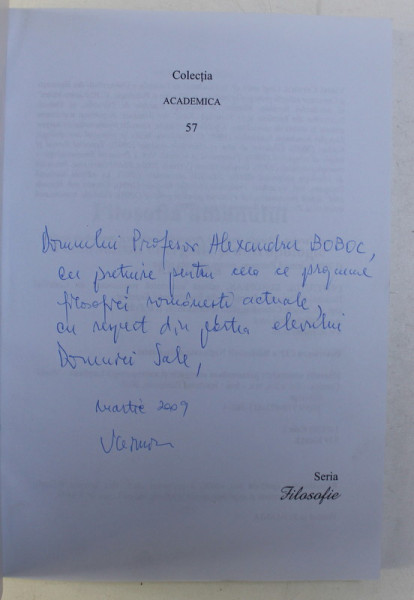 Colecția
ACADEMICA
57
Domnului Profesor Alexandru BOBOC,
cu prețuire pentru ceea ce propune
filosofiei românești actuale,
cu respect din partea elevului
Domniei Sale,
martie 2009
Seria
Filosofie